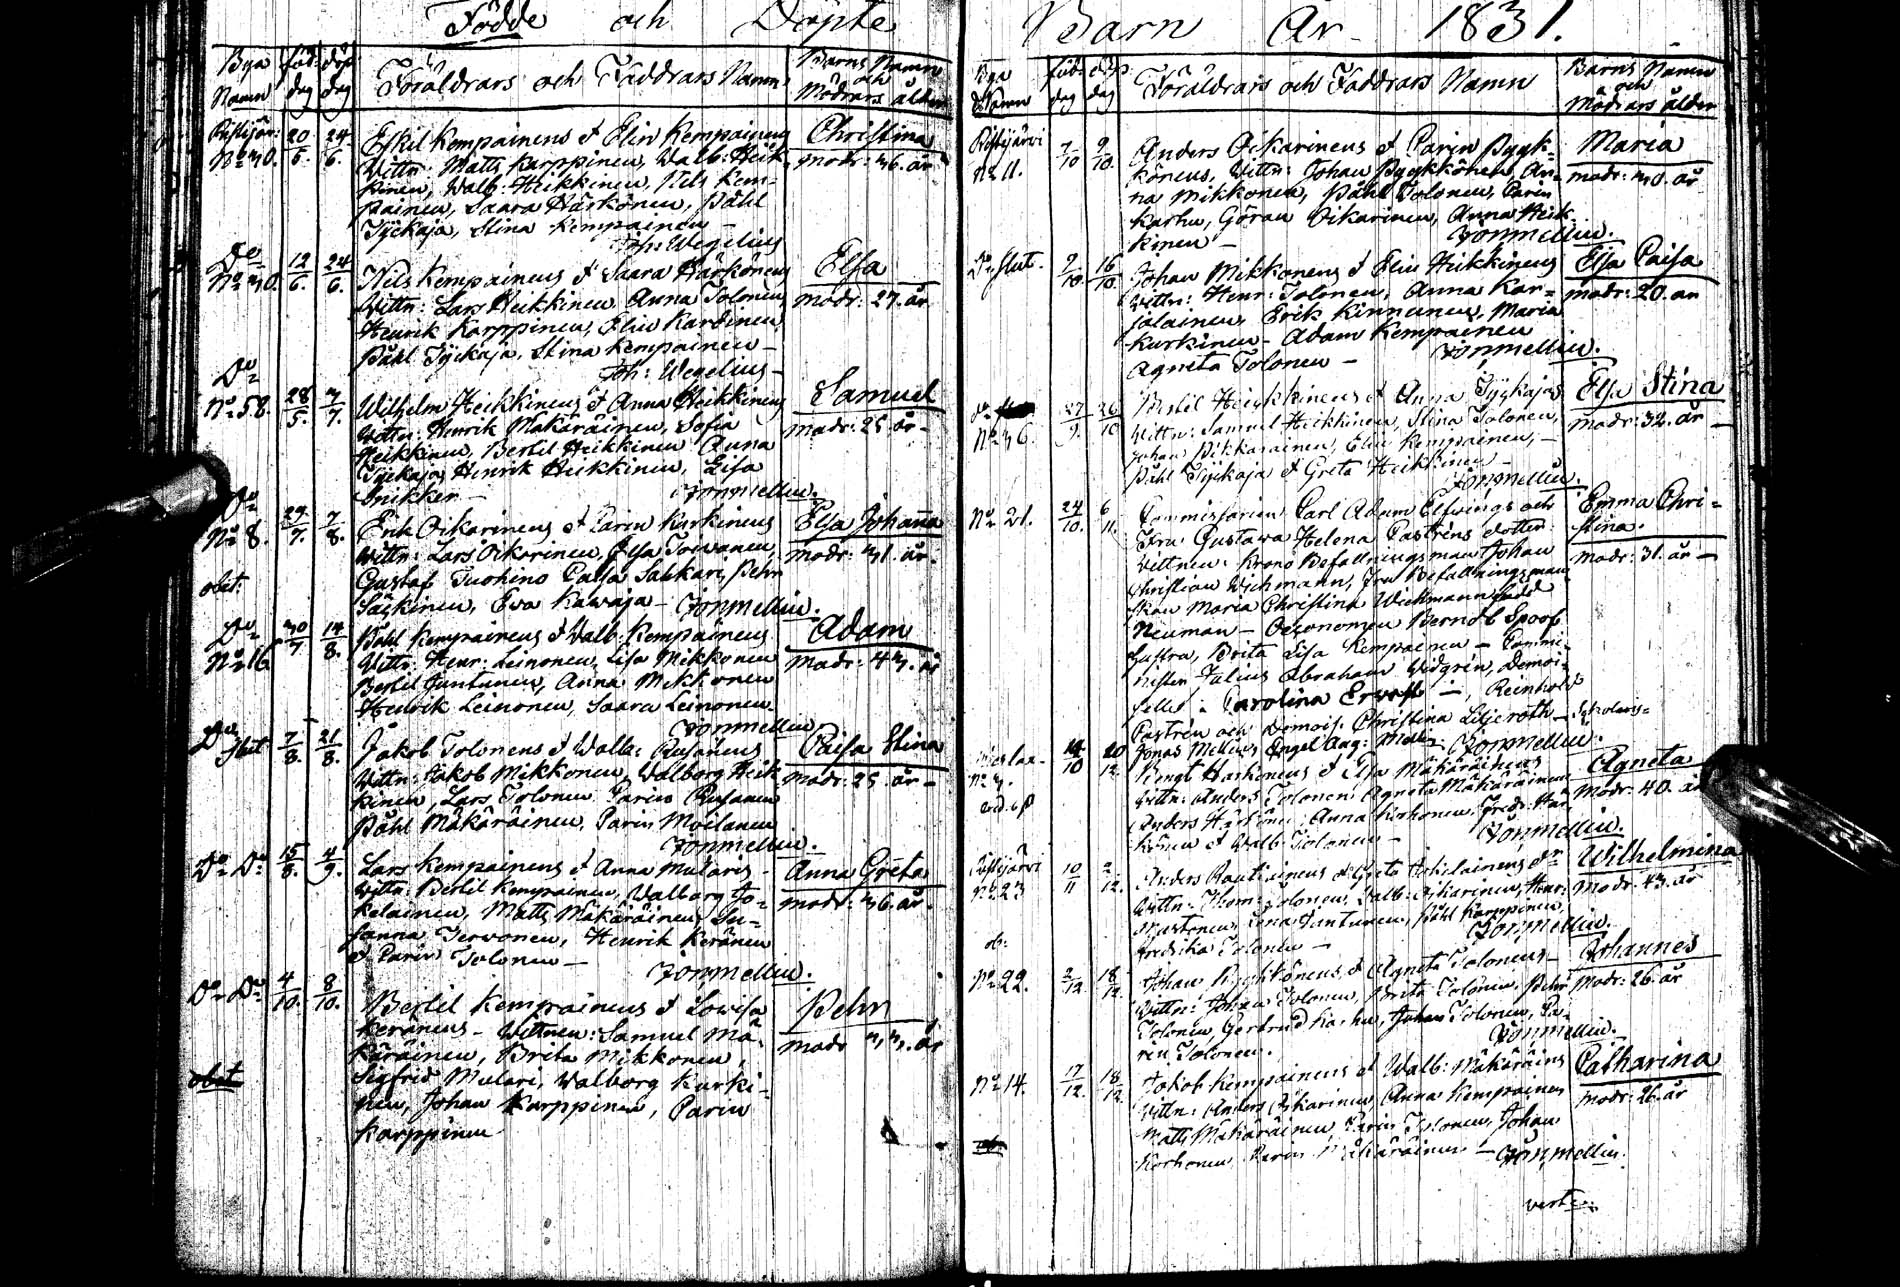 Födde och Döpte
Barn År 1831.
Bya Namn
föd: dag
döp dag
Föräldrars och Faddrars Namn
Barns Namn och Mödrars ålder
No 30. 20/5. 24/6.
Eskil Kempainens & Elin Kempainens
Wittn: Matts Karppinen, Walb: Heik-
kinen, Walb: Heikkinen, Nils Kem-
painen, Saara Härkönen, Påhl
Tyckäjä, Stina Kempainen –
Joh: Wegelius
Christina
modr: 36. år
Do No 30. 12/6. 24/6.
Nils Kempainens & Saara Härkönens
Wittn: Lars Heikkinen Anna Tolonen,
Henrik Karppinen, Elin
Påhl Tyckäjä, Stina Kempainen –
Joh: Wegelius –
Elsa
modr: 27. år
Do No 58. 28/5. 3/7.
Wilhelm Heikkinens & Anna Heikkinens
Wittn: Henrik Makäräinen, Sofia
Heikkinen, Bertil Heikkinen Anna
Henrik Heikkinen, Lisa
Snikker –
Jonmellin.
Samuel
modr: 25 år –
Do No 8. 7/8.
obiit:
Erik Oikarinens & Carin Kurkinens
Wittn: Lars Oikarinen, Elsa Toiwanen,
Gustaf Tuohino Caisa Sakkari, Pehr
Säckinen, Ewa Kawaja – Jonmellin.
Elsa Johanna
modr: 31. år.
Do No 16. 30/7 14/8.
Påhl Kempainens & Walb: Kempainens
Wittn: Henr: Leinonen, Lisa Mikkonen
Bertil Juntunen, Anna Mikkonen
Henrik Leinonen, Saara Leinonen.
Jonmellin
Adam
modr: 43. år
Do 7/8. 21/8.
Jakob Tolonens & Walb: Rusanens
Wittn: Jakob Mikkonen, Walborg Heik
kinen, Lars Tolonen Carin Rusanen
Påhl Mäkäräinen, Carin Moilanen
Jonmellin.
Caisa Stina
modr: 25 år –
Do Do 15/8. 4/9.
Lars Kempainens & Anna Mularis –
Wittn: Bertil Kempainen, Walborg Jo-
kelainen, Matts Mäkäräinen, Su-
sanna Terwonen, Henrik Keränen
& Carin Tolonen –
Jonmellin.
Anna Greta
modr: 36. år.
Do Do 4/10. 8/10.
obiit
Bertil Kempainens & Lowisa
Keränens – Wittnen: Samuel Mä-
käräinen, Brita Mikkonen,
Sigfrid Mulari, Walborg Kurki-
nen, Johan Karppinen, Carin
Karppinen
Pehr
modr 33. år
Bya Namn
föd: dag
döp dag
Föräldrars och Faddrars Namn
Barns Namn och Mödrars ålder
Ristijärvi No 11. 7/10 9/10.
Anders Oikarinens & Carin Pyyk-
könens, Wittn: Johan Pyykkönen, An-
na Mikkonen, Påhl Tolonen, Carin
Karhu, Göran Oikarinen, Anna Heik-
kinen –
Jonmellin.
Maria
modr: 30. år
9/10. 16/10.
Johan Mikkonens & Elin Heikkinens
Wittn: Henr: Tolonen, Anna Kar-
jalainen, Erik Kinnunen, Maria
Kurkinen – Adam Kempainen
Agneta Tolonen –
Jonmellin.
Elsa Caisa
modr: 20. år
No 36. 27/9. 26/10
Bertil Heikkinens & Anna Tyckäjäs
Wittn: Samuel Heikkinen, Stina Tolonen,
Johan Pikkarainen, Elin Kempainen, –
Påhl Tyckäjä & Greta Heikkinen –
Jonmellin.
Elsa Stina
modr: 32. år –
No 21. 24/10. 6/11.
Commissarien Carl Adam Elfvings och
Fru Gustawa Helena Castréns dotter
Wittnen: Krono Befallningsman Johan
Christian Wichmann, Fru Befallningsman-
skan Maria Christina Wichmann född
Neuman – Oeconomen Berndt Spoof
Brita Lisa Kempainen –
Julius Abraham Widgrén, Demoi-
selle: Carolina Erwast –, Reinhold
Castrén och Demois: Christina Liljeroth –
Jonas Mellin Engel Aug: Mellin – Jonmellin.
Emma Chri-
stina.
modr: 31. år –
14/10 20/12.
Bengt Härkönens & Elsa Mäkäräinens
Wittn: Anders Tolonen Agneta Mäkäräinen
Anders Härkönen, Anna Korhonen, Fredr: Här-
könen & Walb: Tolonen –
Jonmellin.
Agneta
modr: 40. år
Ristijärvi No 23 10/11 2/12.
ob:
Anders Rautiainens & Greta
Wittn: Thom: Tolonen, Walb: Oikarinen, Henr:
Mustonen, Lena Juntunen, Påhl Karppinen,
Fredrika Tolonen –
Jonmellin.
Wilhelmina
modr: 43. år
No 22. 2/12 18/12.
Johan Pyykkönens & Agneta Tolonens –
Wittn: Johan Tolonen, Brita Tolonen, Pehr
Tolonen, Gertrud Karhu, Johan Tolonen, Ca-
rin Tolonen.
Jonmellin.
Johannes
modr: 26. år
No 14. 17/12. 18/12
Jakob Kempainens & Walb: Mäkäräinens
Wittn: Anders Oikarinen Anna Kempainen
Matts Mäkäräinen Carin Tolonen, Johan
Korhonen, Carin Mäkäräinen – Jonmellin.
Catharina
modr: 26. år
vert: